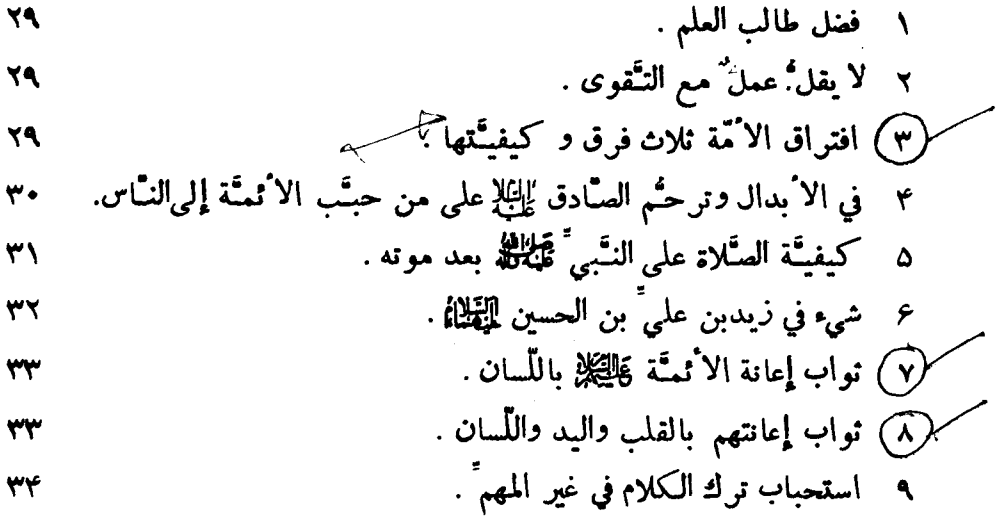 ١ فضل طالب العلم . ٢٩
٢ لا يقلُّ عملٌ مع التَّقوى . ٢٩
٣ افتراق الأُمّة ثلاث فرق و كيفيَّتها . ٢٩
۴ في الأبدال وترحُّم الصّادق عليه‌السلام على من حبَّب الأئمَّة إلى النّاس. ٣٠
۵ كيفيَّة الصَّلاة على النَّبيِّ صلى‌الله‌عليه‌وآله بعد موته . ٣١
۶ شيء في زيدبن عليِّ بن الحسين عليهما‌السلام . ٣٢
٧ ثواب إعانة الأئمَّة عليهم‌السلام باللّسان . ٣٣
٨ ثواب إعانتهم بالقلب واليد واللّسان . ٣٣
٩ استحباب ترك الكلام في غير المهمِّ . ٣۴